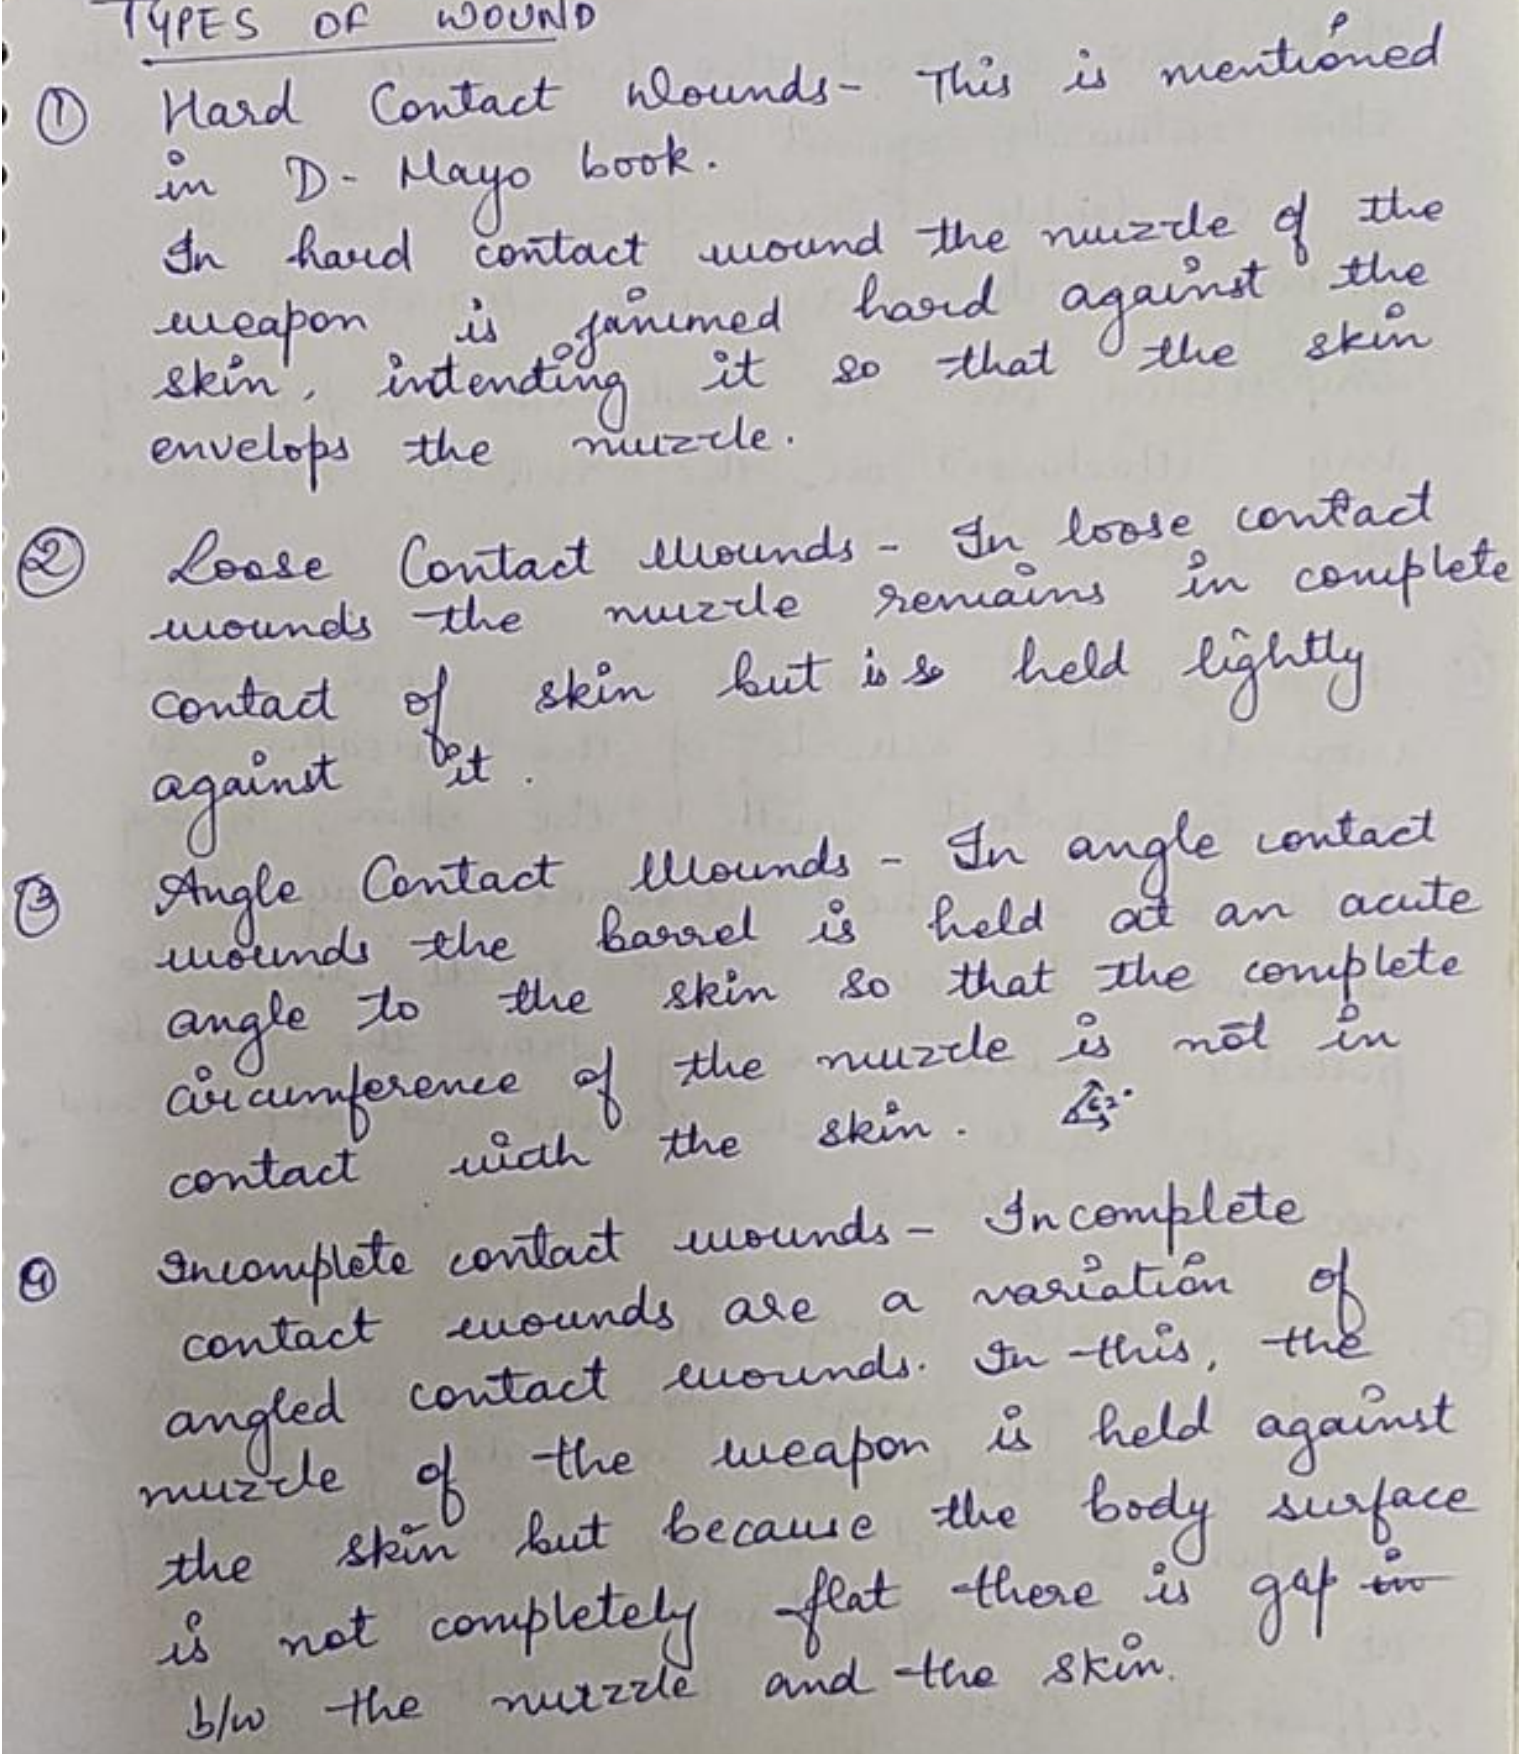 TYPES OF WOUND
① Hard Contact Wounds- This is mentioned
in D- Mayo book.
In hard contact wound the muzzle of the
weapon is jammed hard against the
skin, intending it so that the skin
envelops the muzzle.
② Loose Contact Wounds - In loose contact
wounds the muzzle remains in complete
contact of skin but is held lightly
against it.
③ Angle Contact Wounds - In angle contact
wounds the barrel is held at an acute
angle to the skin so that the complete
circumference of the muzzle is not in
contact with the skin.
④ Incomplete contact wounds - Incomplete
contact wounds are a variation of
angled contact wounds. In this, the
muzzle of the weapon is held against
the skin but because the body surface
is not completely flat there is gap in
b/w the muzzle and the skin.